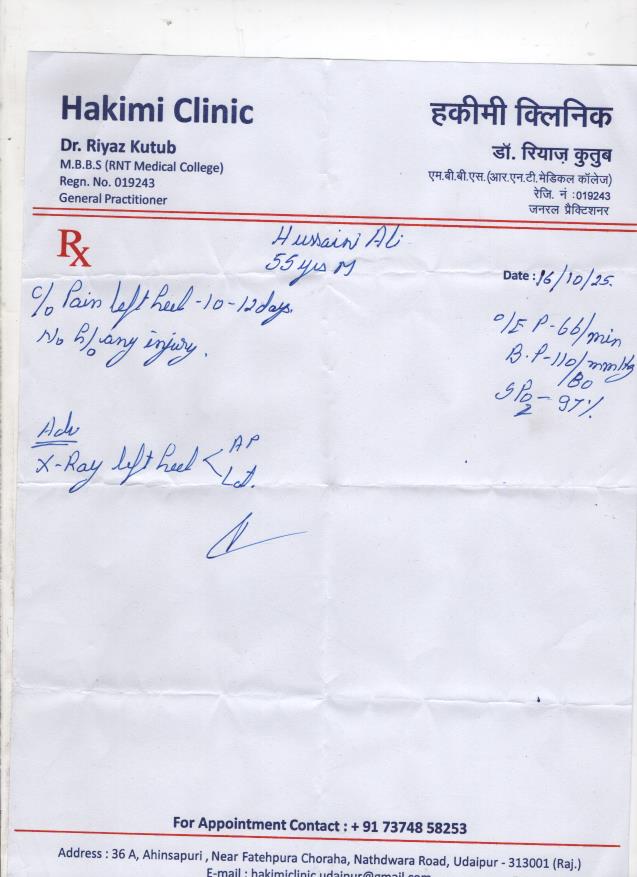 Hakimi Clinic
Dr. Riyaz Kutub
M.B.B.S (RNT Medical College)
Regn. No. 019243
General Practitioner
हकीमी क्लिनिक
डॉ. रियाज़ कुतुब
एम.बी.बी.एस.(आर.एन.टी.मेडिकल कॉलेज)
रेजि. नं :019243
जनरल प्रैक्टिशनर
Rx
Hussaini Ali
55 yrs M
Date : 16/10/25.
c/o Pain left heel - 10-12 days.
No h/o any injury.
O/E P-66/min
B.P-110/mmHg
/80
SPO2 - 97%
Adv
X-Ray left heel < AP
Lat.
For Appointment Contact : + 91 73748 58253
Address : 36 A, Ahinsapuri , Near Fatehpura Choraha, Nathdwara Road, Udaipur - 313001 (Raj.)
E-mail : hakimiclinic.udaipur@gmail.com